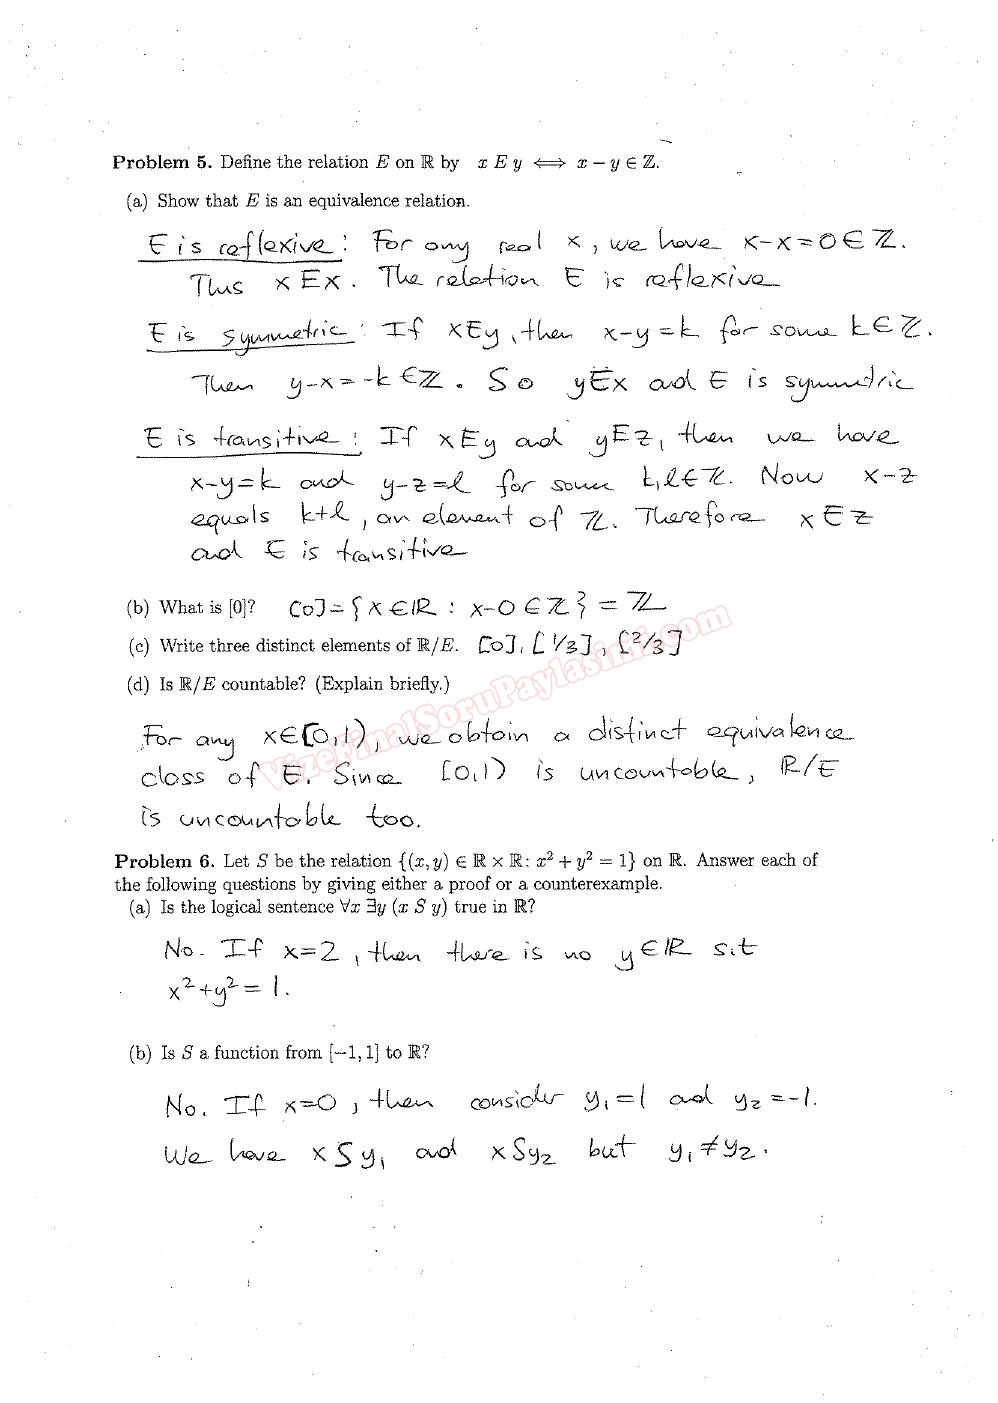 Problem 5. Define the relation E on ℝ by x E y ⟺ x − y ∈ ℤ.
(a) Show that E is an equivalence relation.
E is reflexive: For any real x, we have x-x=0∈ℤ.
Thus xEx. The relation E is reflexive
E is symmetric: If xEy, then x-y=k for some k∈ℤ.
Then y-x=-k∈ℤ. So yEx and E is symmetric
E is transitive: If xEy and yEz, then we have
x-y=k and y-z=l for some k,l∈ℤ. Now x-z
equals k+l, an element of ℤ. Therefore xEz
and E is transitive
(b) What is [0]? [0]={x∈ℝ : x-0∈ℤ}=ℤ
(c) Write three distinct elements of ℝ/E. [0], [1/3], [2/3]
(d) Is ℝ/E countable? (Explain briefly.)
For any x∈[0,1), we obtain a distinct equivalence
class of E. Since [0,1) is uncountable, ℝ/E
is uncountable too.
VizeFinalSoruPaylasimi.com
Problem 6. Let S be the relation {(x, y) ∈ ℝ × ℝ: x² + y² = 1} on ℝ. Answer each of
the following questions by giving either a proof or a counterexample.
(a) Is the logical sentence ∀x ∃y (x S y) true in ℝ?
No. If x=2, then there is no y∈ℝ s.t
x²+y²=1.
(b) Is S a function from [−1, 1] to ℝ?
No. If x=0, then consider y₁=1 and y₂=-1.
We have xSy₁ and xSy₂ but y₁≠y₂.